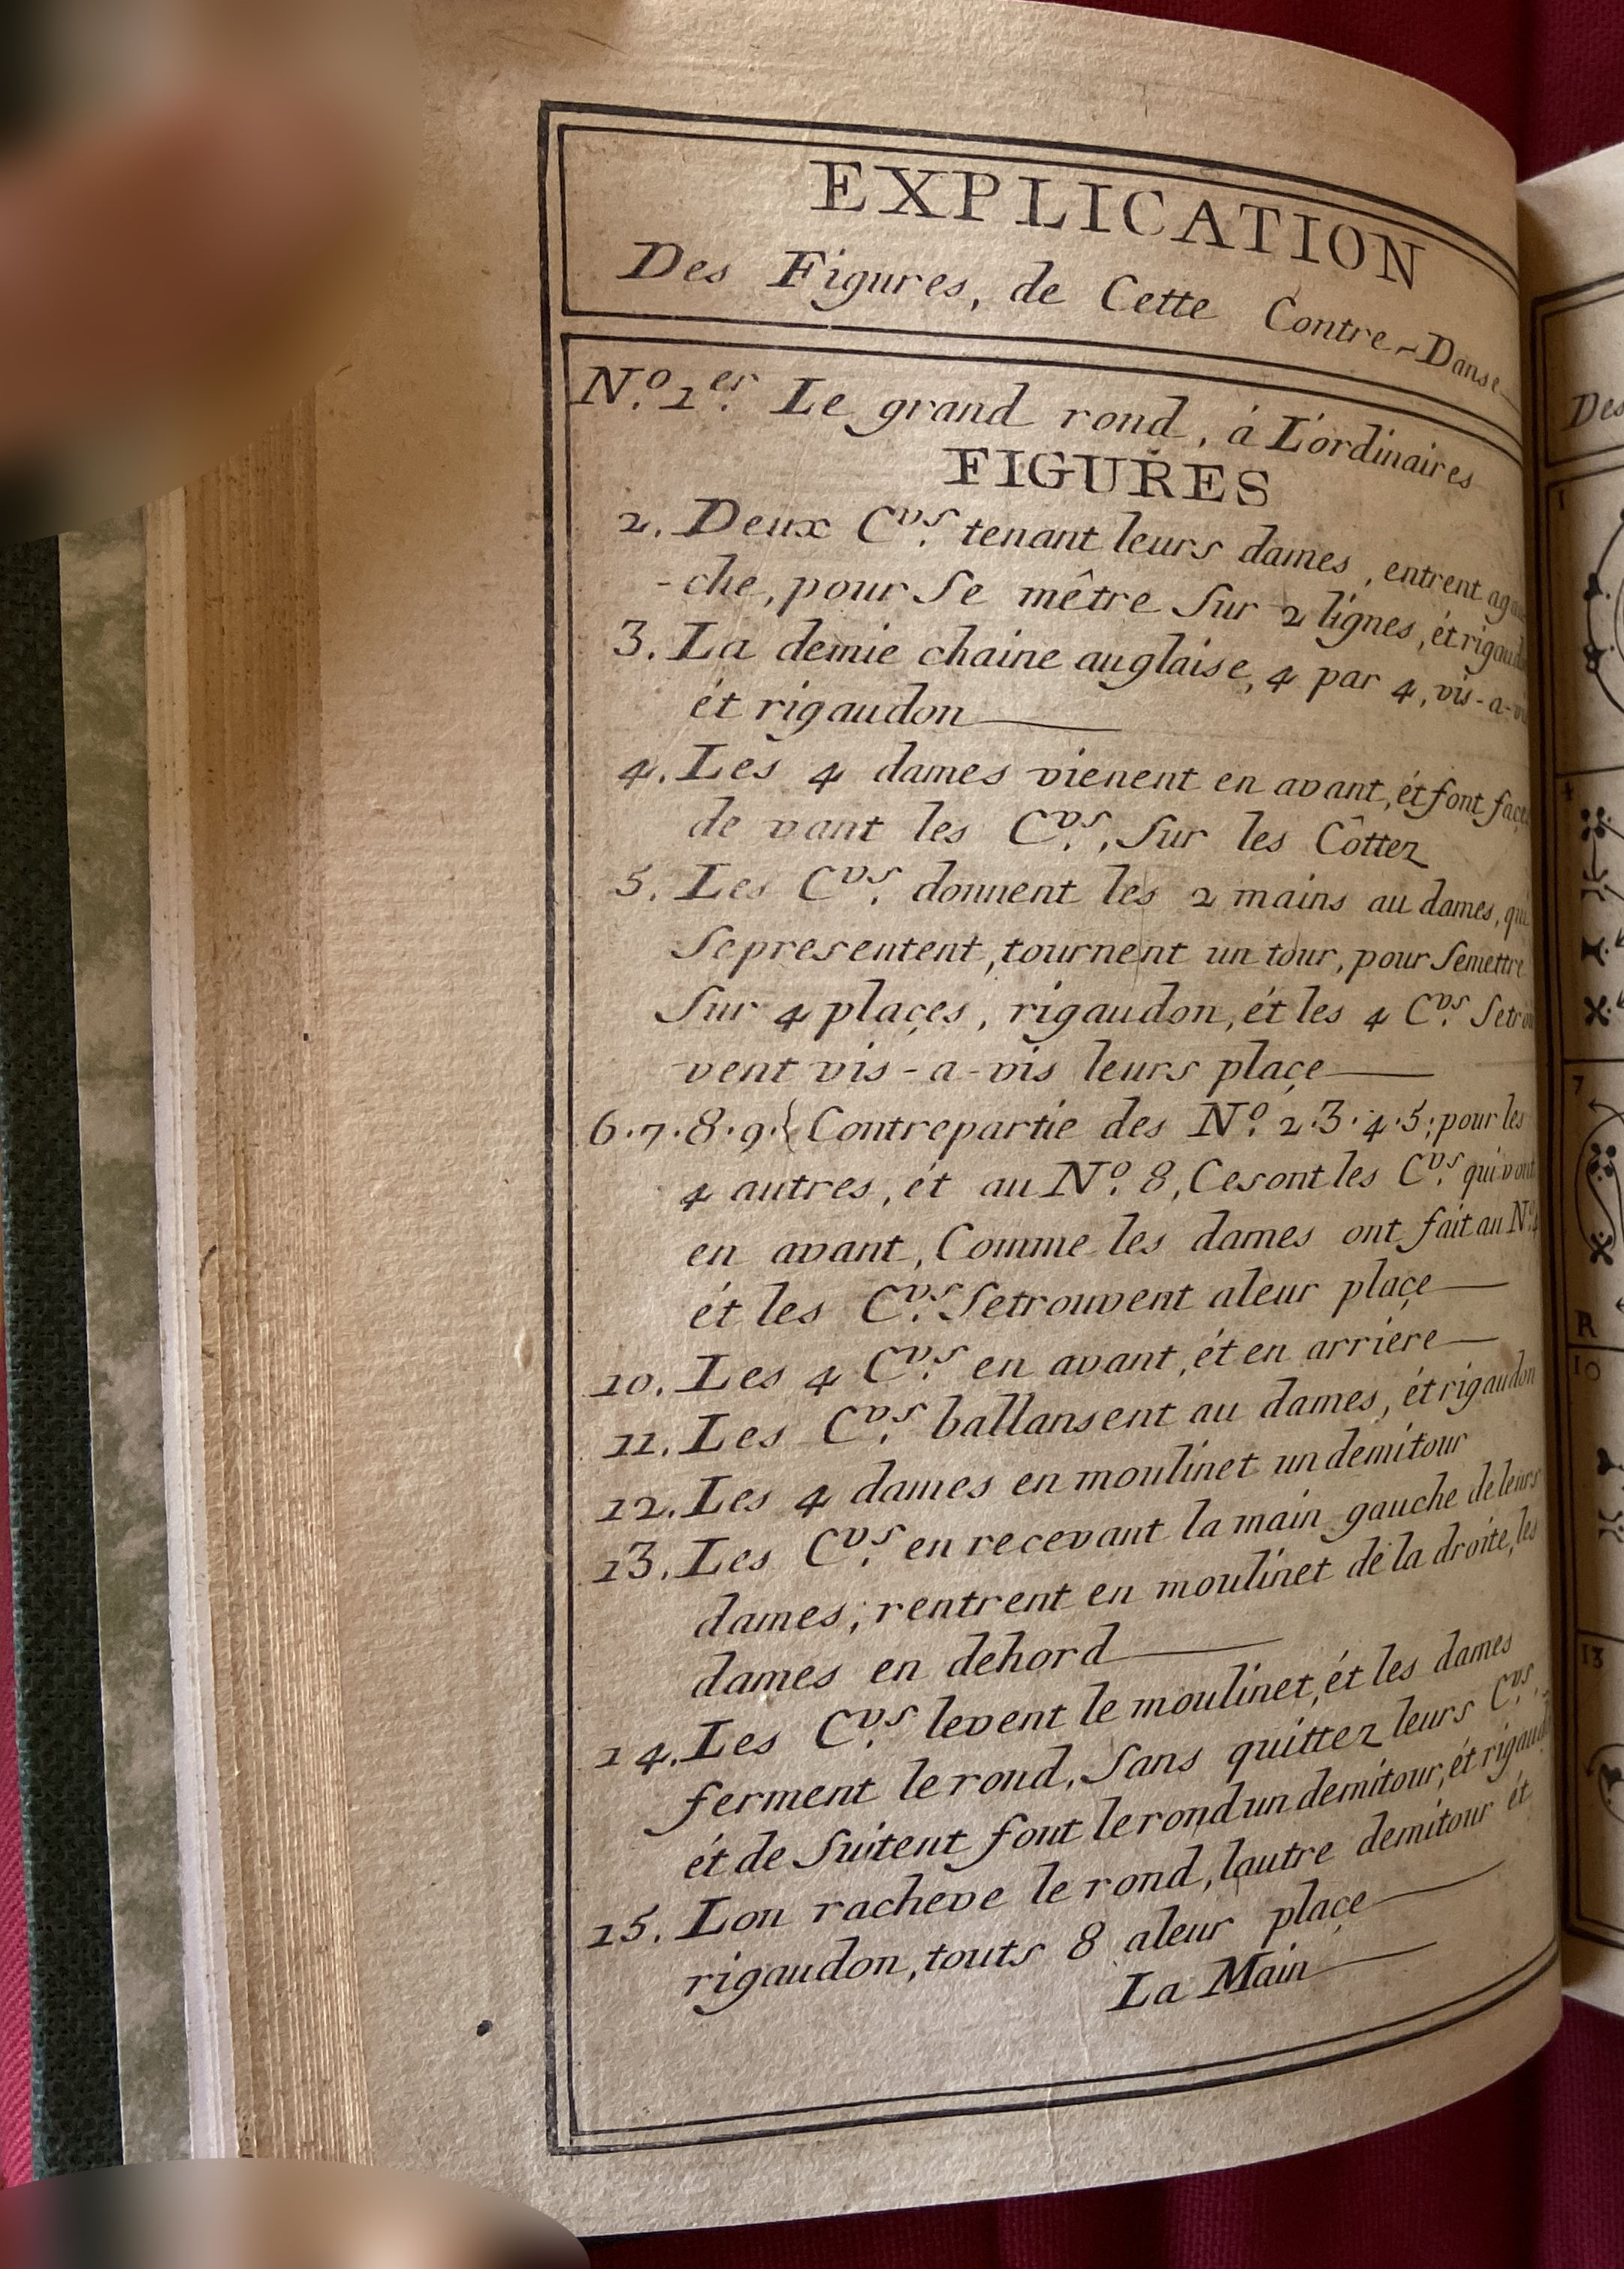 EXPLICATION
Des Figures, de Cette Contre-Danse
N.º 1.er Le grand rond, à L'ordinaires
FIGURES
2. Deux C.vs tenant leurs dames, entrent
-che, pour Se mêtre Sur 2 lignes, ét
3. La demie chaine auglaise, 4 par 4, vis-a-
ét rigaudon
4. Les 4 dames vienent en avant, ét font
de vant les C.vs, Sur les Côttez
5. Les C.vs donnent les 2 mains au dames, qui
Sepresentent, tournent un tour, pour Semettre
Sur 4 plaçes, rigaudon, ét les 4 C.vs Setrou
vent vis-a-vis leurs plaçe
6.7.8.9.{ Contrepartie des N.º 2.3.4.5; pour les
4 autres, ét au N.º 8, Cesont les C.vs qui vont
en avant, Comme les dames ont fait au N.º
ét les C.vs Setrouvent aleur plaçe
10. Les 4 C.vs en avant, ét en arriere
11. Les C.vs ballansent au dames, ét rigaudon
12. Les 4 dames en moulinet un demitour
13. Les C.vs en recevant la main gauche de leurs
dames; rentrent en moulinet de la droite, les
dames en dehord
14. Les C.vs levent le moulinet, ét les dames
ferment le rond, Sans quittez leurs C.vs
ét de Suitent font le rond un demitour, ét
15. Lon racheve le rond, lautre demitour ét
rigaudon, touts 8 aleur plaçe
La Main
Des
1
4
7
R
10
13